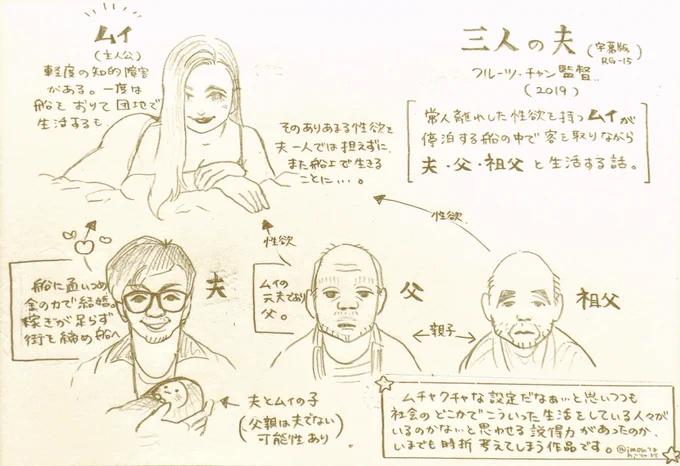 ムイ
(主人公)
軽度の知的障害
がある。一度は
船を おりて 団地で
生活するも
三人の夫
(字幕版
RG-15)
フルーツ・チャン監督
(2019)
常人離れした性欲を持つムイが
停泊する船の中で客を取りながら
夫・父・祖父 と生活する話。
そのありあまる性欲を
夫一人では担えずに、
また船上で生きる
ことに…。
性欲
性欲
船に通いつめ
金の力で結婚。
稼ぎが足らず
街を諦め船へ
夫
ムイの
元夫であり
父。
父
親子
祖父
夫とムイの子
(父親は夫でない
可能性あり)
ムチャクチャな設定だなぁ…と思いつつも
社会のどこかでこういった生活をしている人々が
いるのかな…と思わせる説得力があったのか、
いまでも時折 考えてしまう作品です。